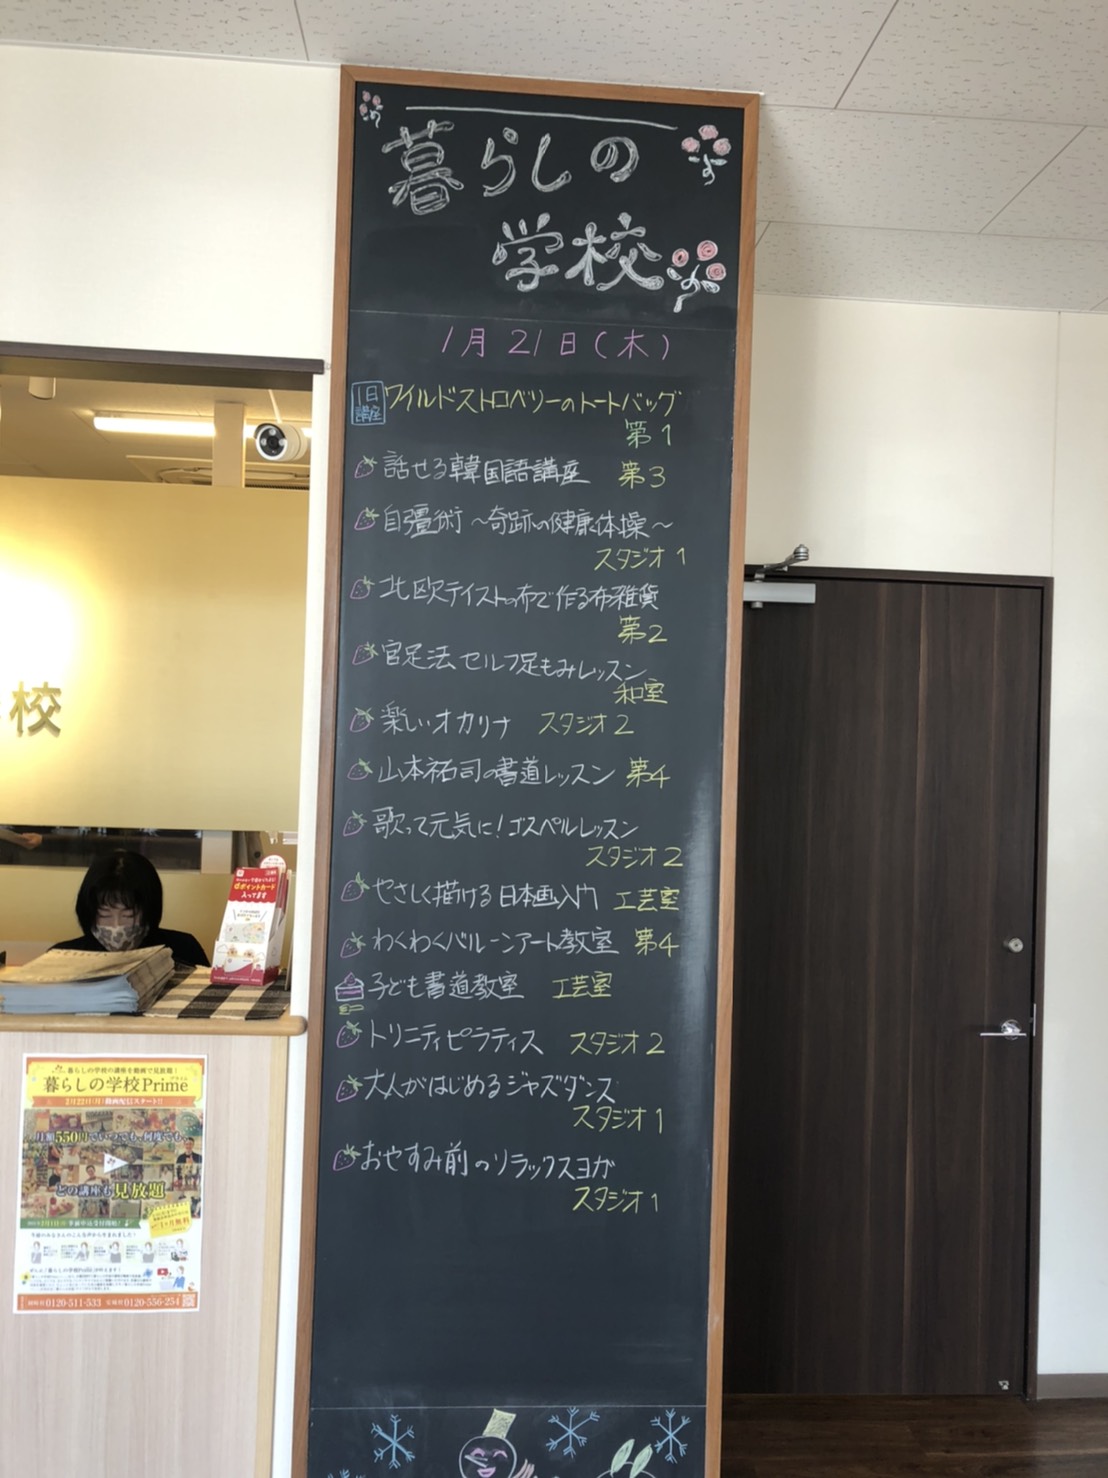 暮らしの
学校
1月21日(木)
1日
講座
ワイルドストロベリーのトートバッグ
第1
話せる韓国語講座 第3
自彊術 〜奇跡の健康体操〜
スタジオ1
北欧テイストの布で作る布雑貨
第2
官足法 セルフ足もみレッスン
和室
楽しいオカリナ スタジオ2
山本祐司の書道レッスン 第4
歌って元気に!ゴスペルレッスン
スタジオ2
やさしく描ける日本画入門 工芸室
わくわくバルーンアート教室 第4
子ども書道教室 工芸室
トリニティピラティス スタジオ2
大人がはじめるジャズダンス
スタジオ1
おやすみ前のリラックスヨガ
スタジオ1
校
ポイントカード
入ってます
暮らしの学校の講座を動画で見放題!
暮らしの学校Prime
2月22日(月)動画配信スタート!!
月額550円でいつでも、何度でも、
どの講座も見放題
0120-511-533
0120-556-254